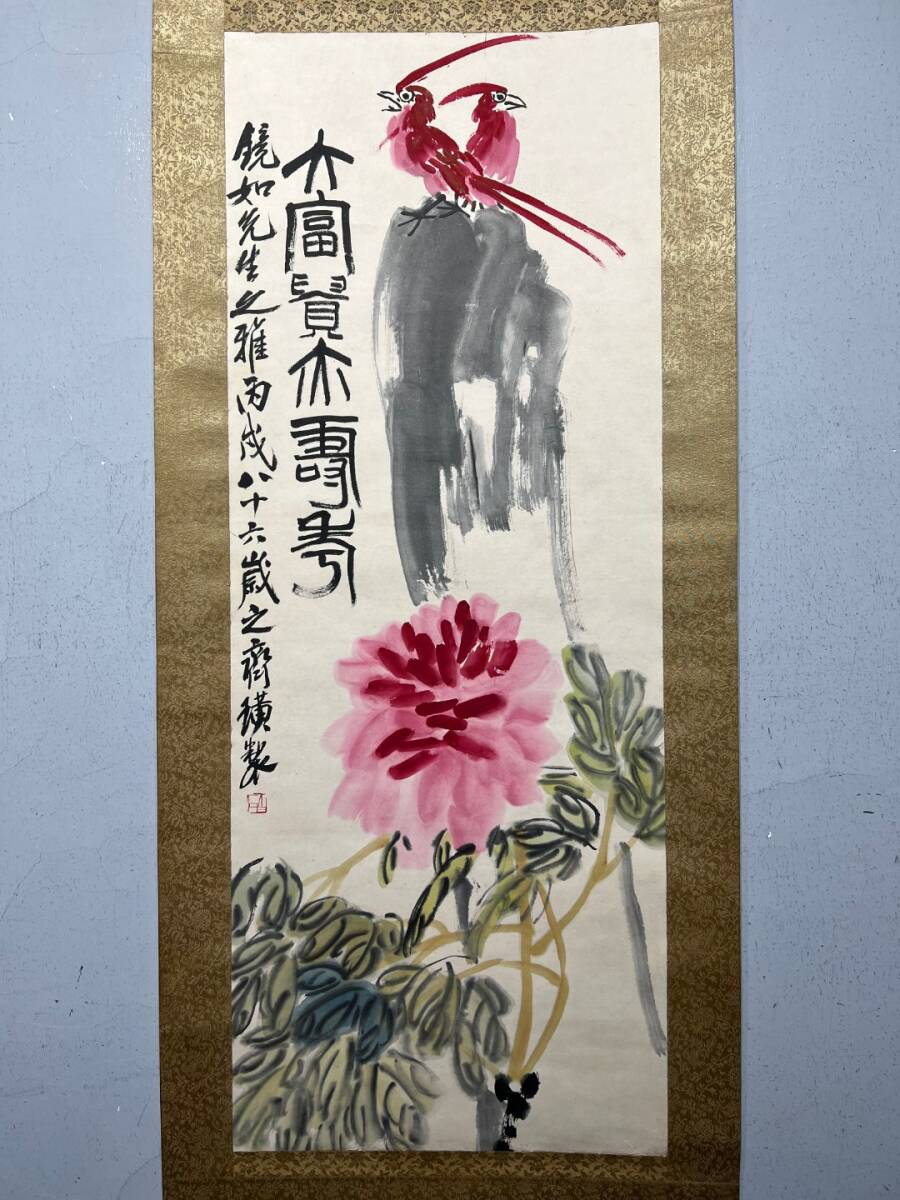 大富貴亦壽考
鏡如先生之雅丙戌八十六歲之齊璜製